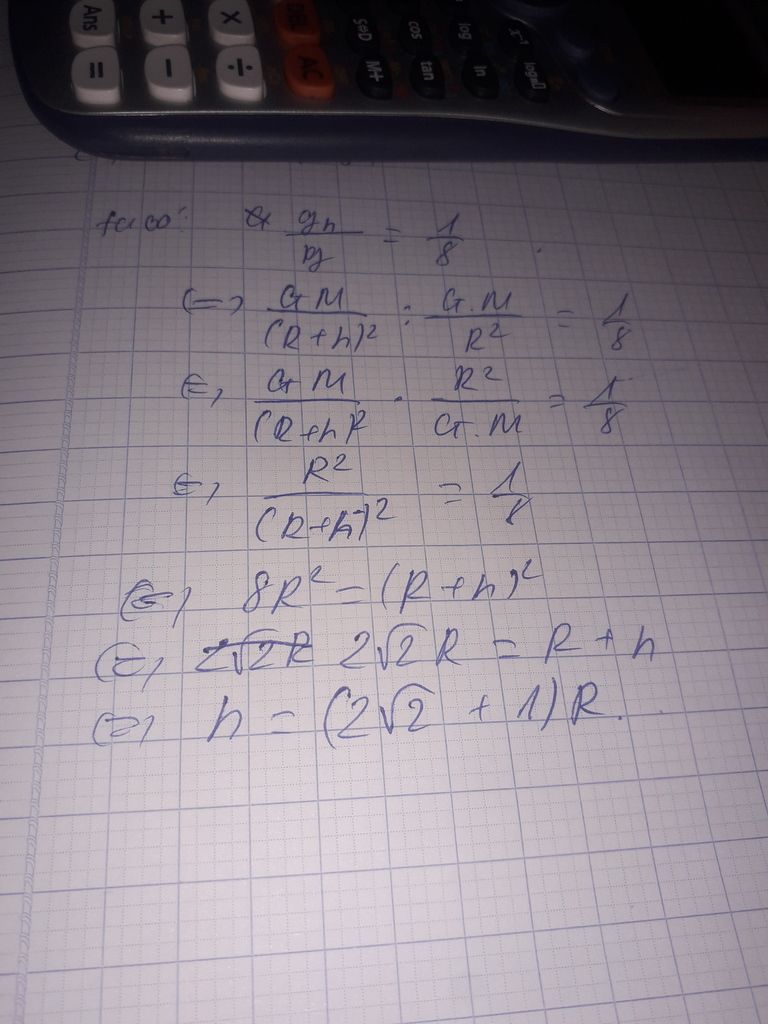 Ans + × DEL S⇔D cos log x⁻¹
= − ÷ AC M+ tan ln
ta có: gh/g = 1/8
(=) GM/(R+h)² : G.M/R² = 1/8
(=) GM/(R+h)² . R²/G.M = 1/8
(=) R²/(R+h)² = 1/8
(=) 8R² = (R+h)²
(=) 2√2R 2√2R = R + h
(=) h = (2√2 + 1)R.